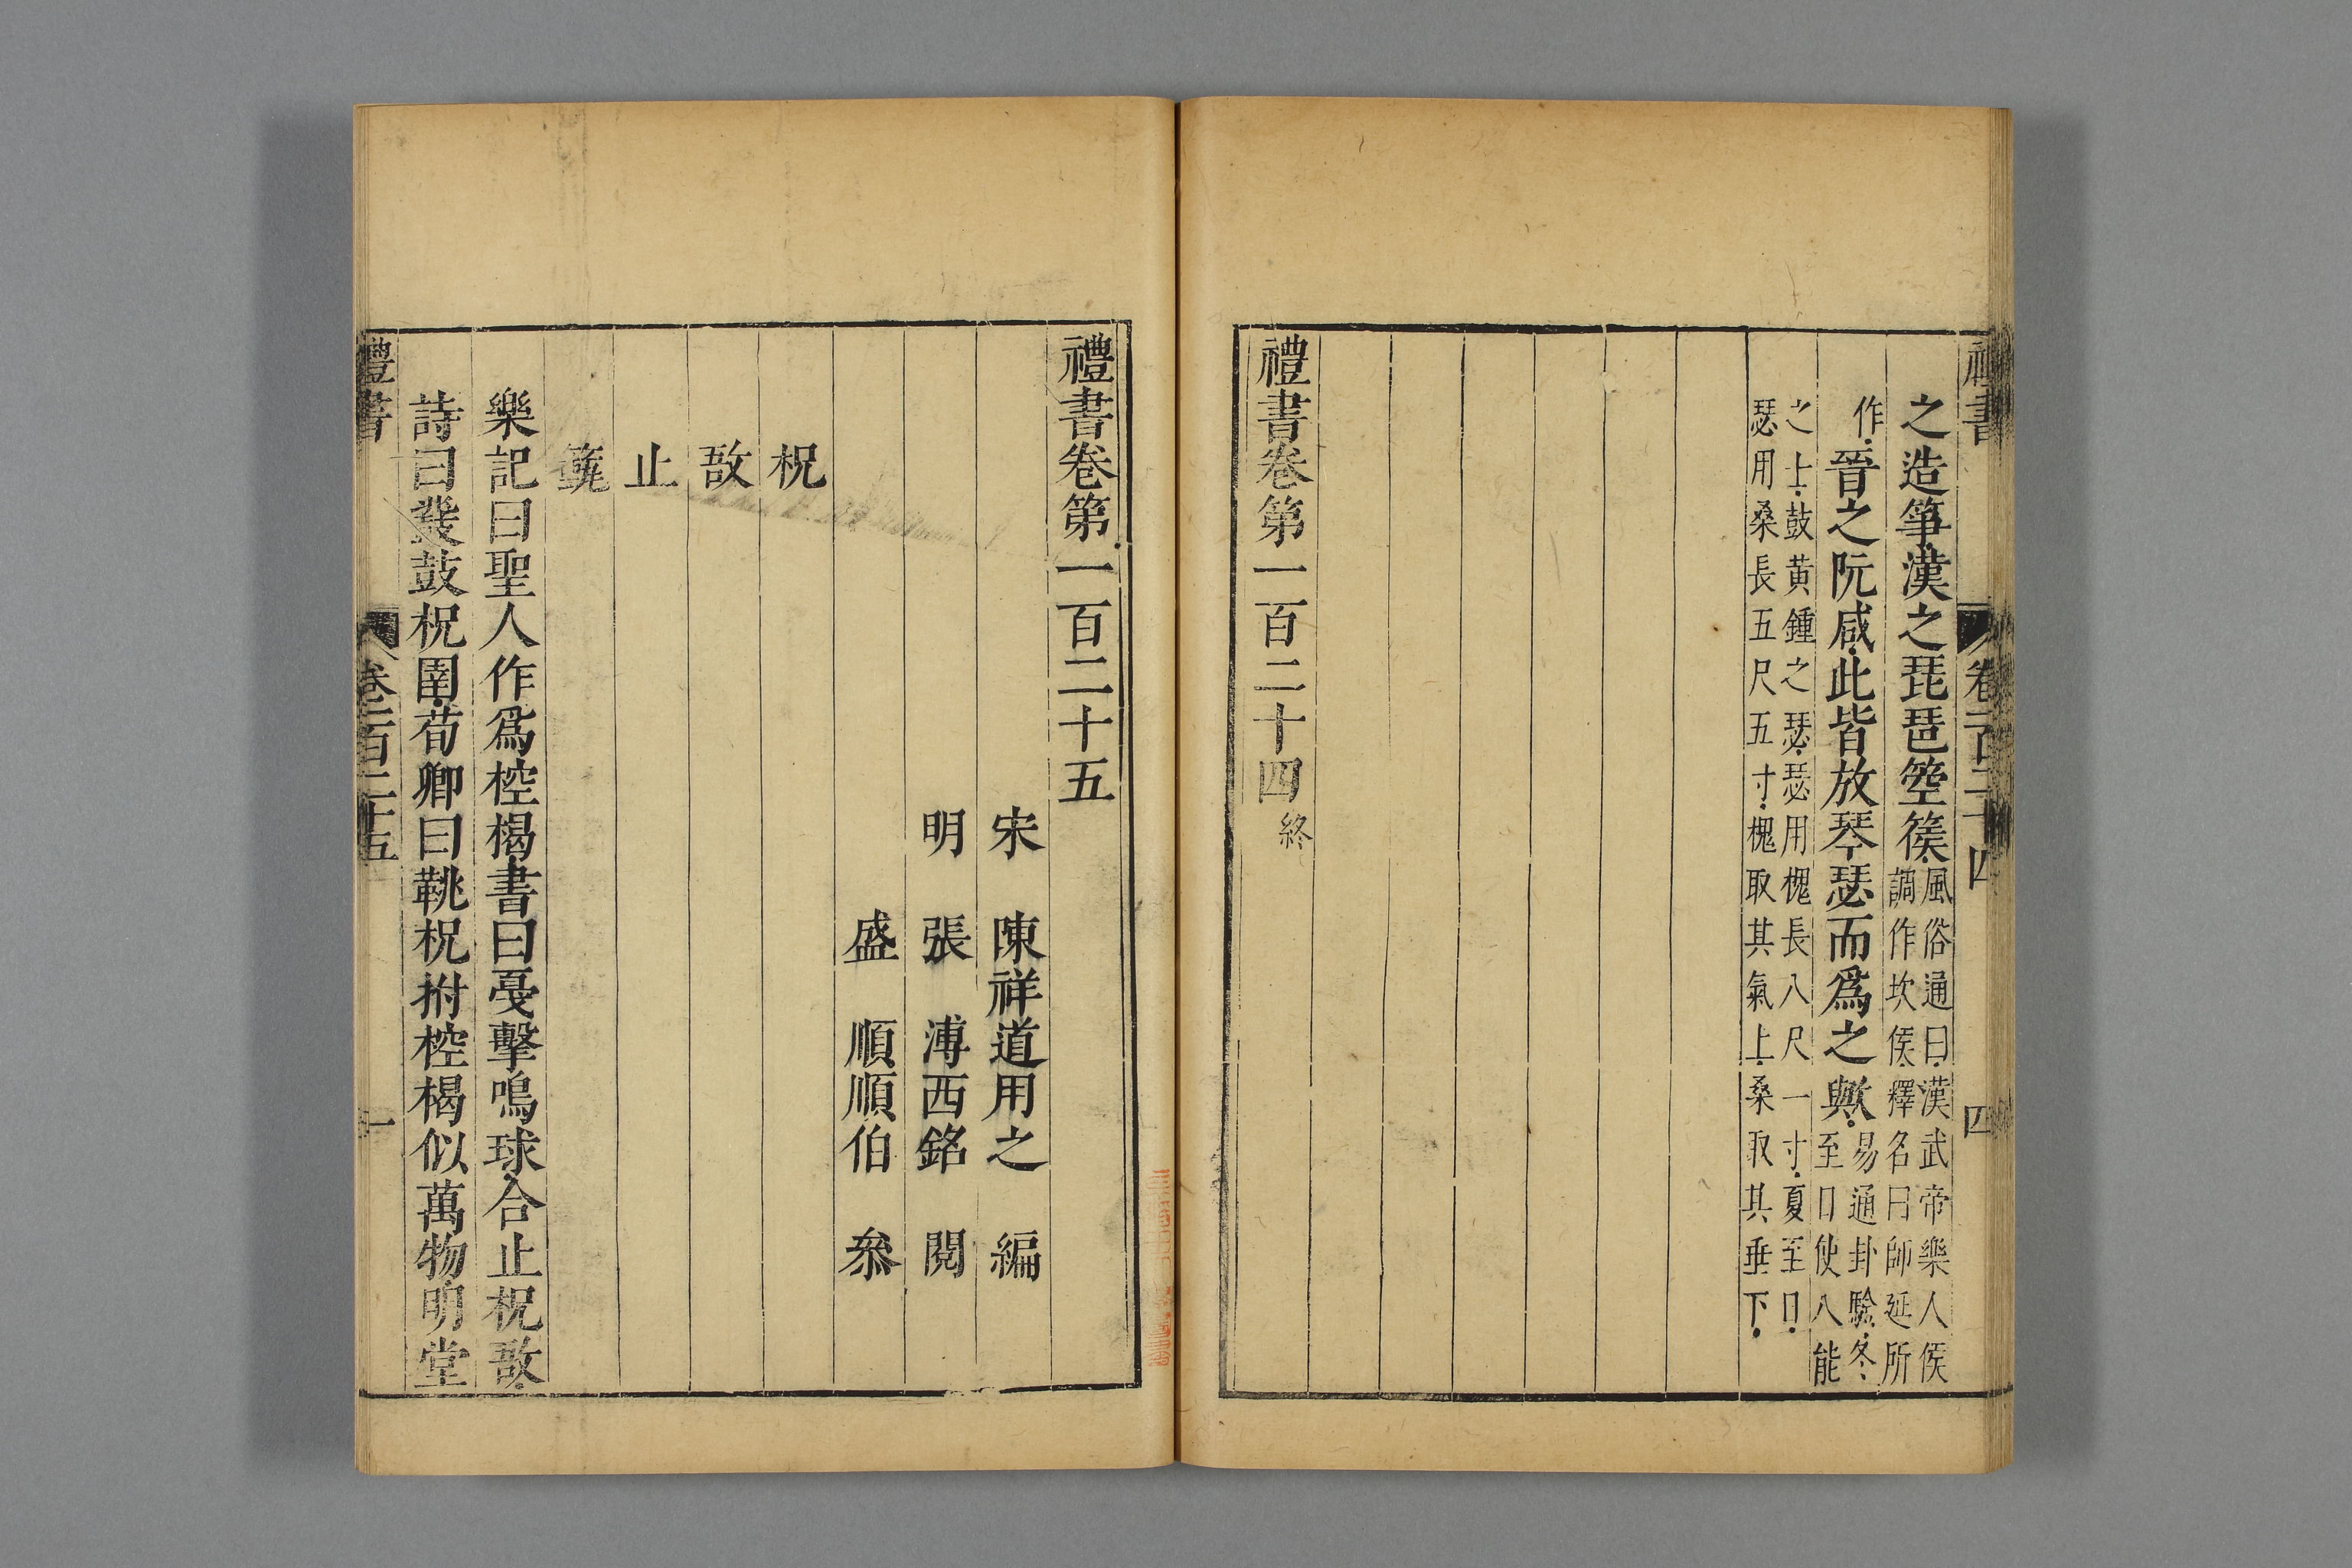 禮書
卷一百二十四
四
之造筝漢之琵琶箜篌風俗通曰漢武帝樂人侯
調作坎侯釋名曰師延所
作晉之阮咸此皆放琴瑟而爲之歟易通卦驗冬
至日使八能
之士鼓黃鍾之瑟瑟用槐長八尺一寸夏至日
瑟用桑長五尺五寸槐取其氣上桑取其垂下
禮書卷第一百二十四終
禮書卷第一百二十五
宋 陳祥道用之 編
明 張 溥西銘 閱
盛 順順伯 叅
柷
敔
止
籈
樂記曰聖人作爲椌楬書曰戞擊鳴球合止柷敔
詩曰鼗鼓柷圉荀卿曰鞉柷拊椌楬似萬物明堂
禮書
卷一百二十五
一